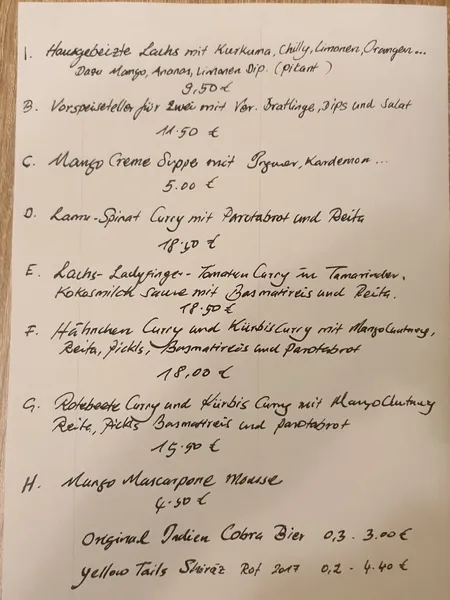 1. Hausgebeizte Lachs mit Kurkuma, Chilly, Limonen, Orangen...
Dazu Mango, Ananas, Limonen Dip. (Pikant)
9,50 €
B. Vorspeiseteller für zwei mit Ver. Bratlinge, Dips und Salat
11.50 €
C. Mango Creme Suppe mit Ingwer, Kardemon ...
5.00 €
D. Lamm-Spinat Curry mit Parotabrot und Reita
18.50 €
E. Lachs-Ladyfinger-Tomaten Curry in Tamarinden,
Kokosmilch Sauce mit Basmatireis und Reita.
18.50 €
F. Hähnchen Curry und Kürbiscurry mit Mangochutney,
Reita, Pickls, Basmatireis und Parotabrot
18,00 €
G. Rotebeete Curry und Kürbis Curry mit Mangochutney
Reita, Pickls Basmatireis und Parotabrot
15.90 €
H. Mango Mascarpone Mousse
4.50 €
Original Indien Cobra Bier 0,3 - 3.00€
Yellow Tails Shiraz Rot 2017 0,2 - 4.40€